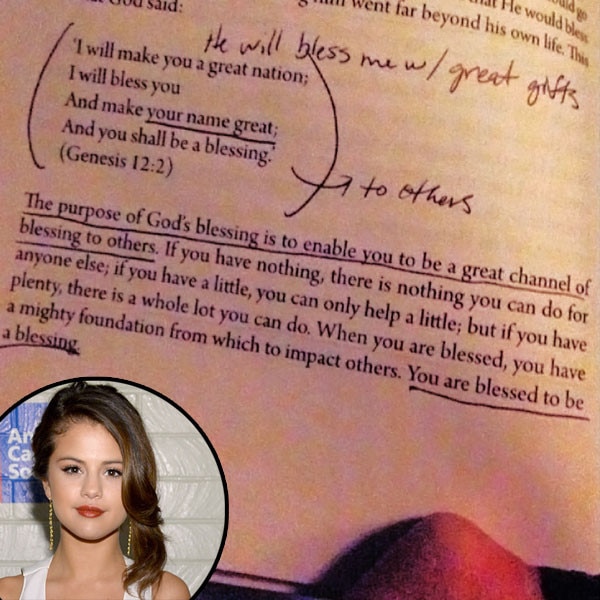 that He would bless
went far beyond his own life. This
God said:
He will bless me w/ great gifts
'I will make you a great nation;
I will bless you
And make your name great;
And you shall be a blessing.'
(Genesis 12:2)
→ to others
The purpose of God's blessing is to enable you to be a great channel of
blessing to others. If you have nothing, there is nothing you can do for
anyone else; if you have a little, you can only help a little; but if you have
plenty, there is a whole lot you can do. When you are blessed, you have
a mighty foundation from which to impact others. You are blessed to be
a blessing.
Ca
So